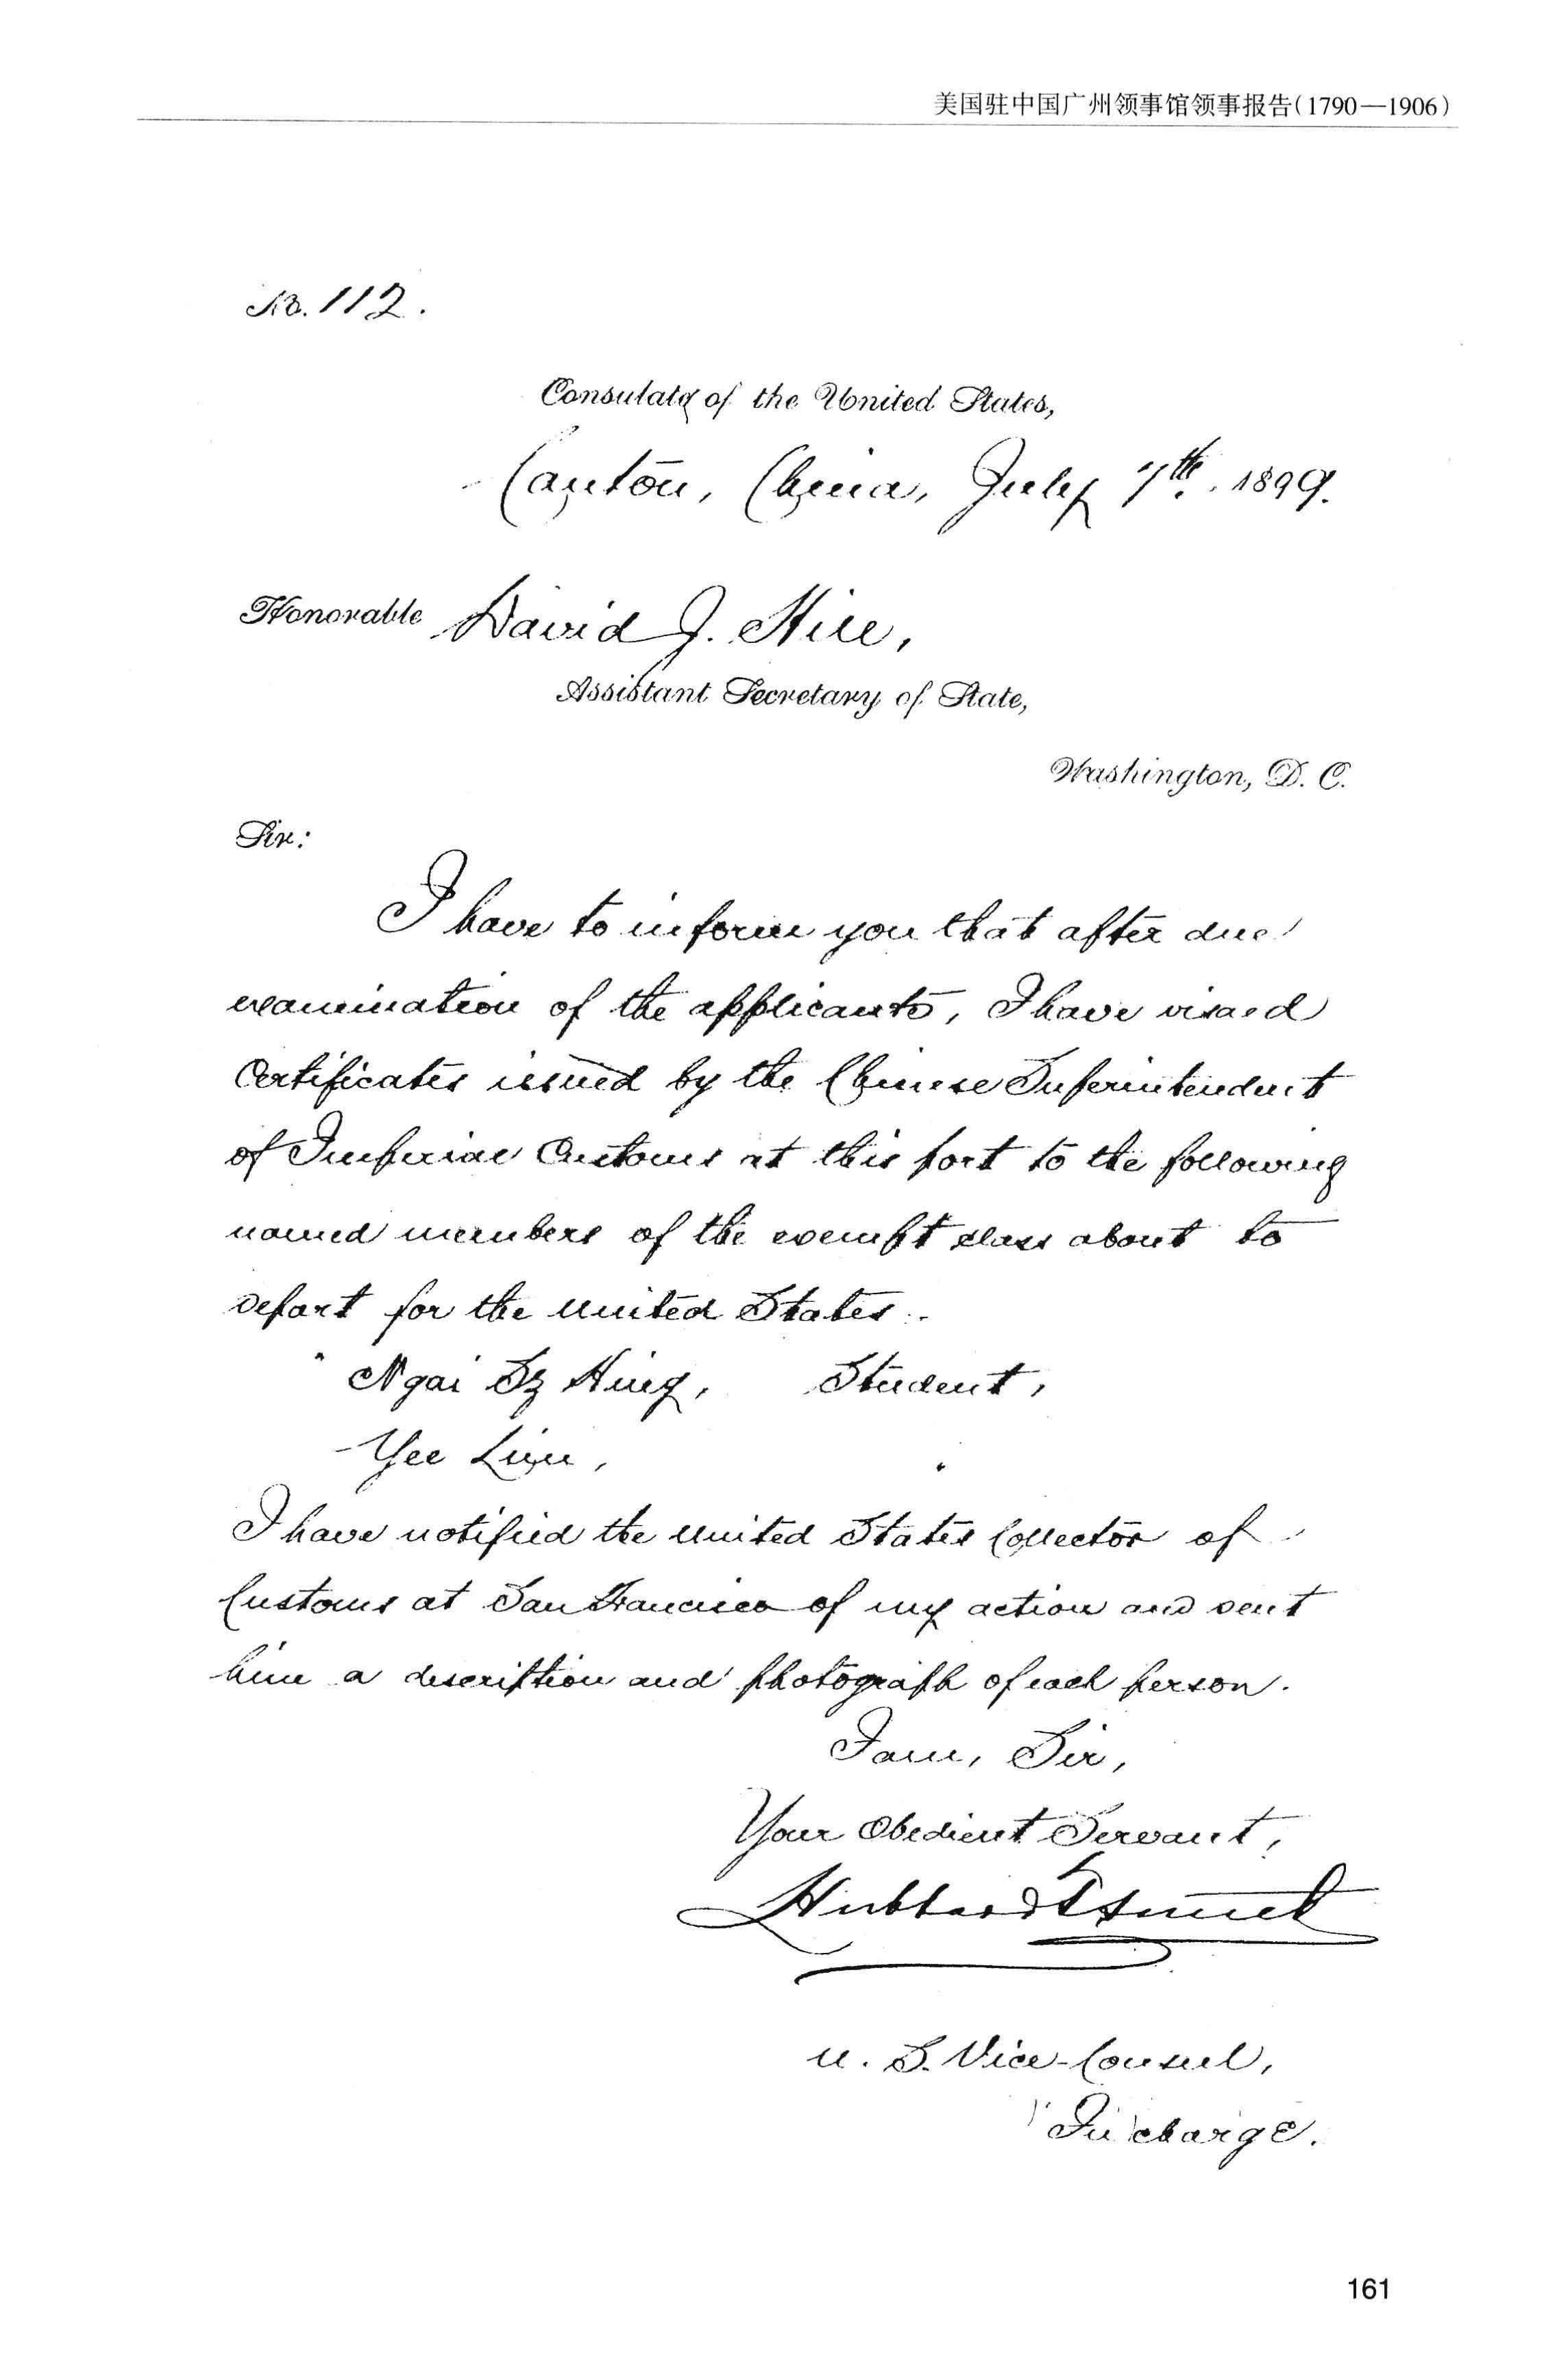 美国驻中国广州领事馆领事报告(1790—1906)
No. 112.
Consulate of the United States,
Canton, China, July 7th, 1899.
Honorable David J. Hill,
Assistant Secretary of State,
Washington, D. C.
Sir:
I have to inform you that after due
examination of the applicants, I have visaed
Certificates issued by the Chinese Superintendent
of Imperial Customs at this port to the following
named members of the exempt class about to
depart for the United States.
Ngai Sz Hing, Student,
Yee Lim, "
I have notified the United States Collector of
Customs at San Francisco of my action and sent
him a description and photograph of each person.
I am, Sir,
Your Obedient Servant,
Hubbard T. Smith
U. S. Vice-Consul,
In charge.
161